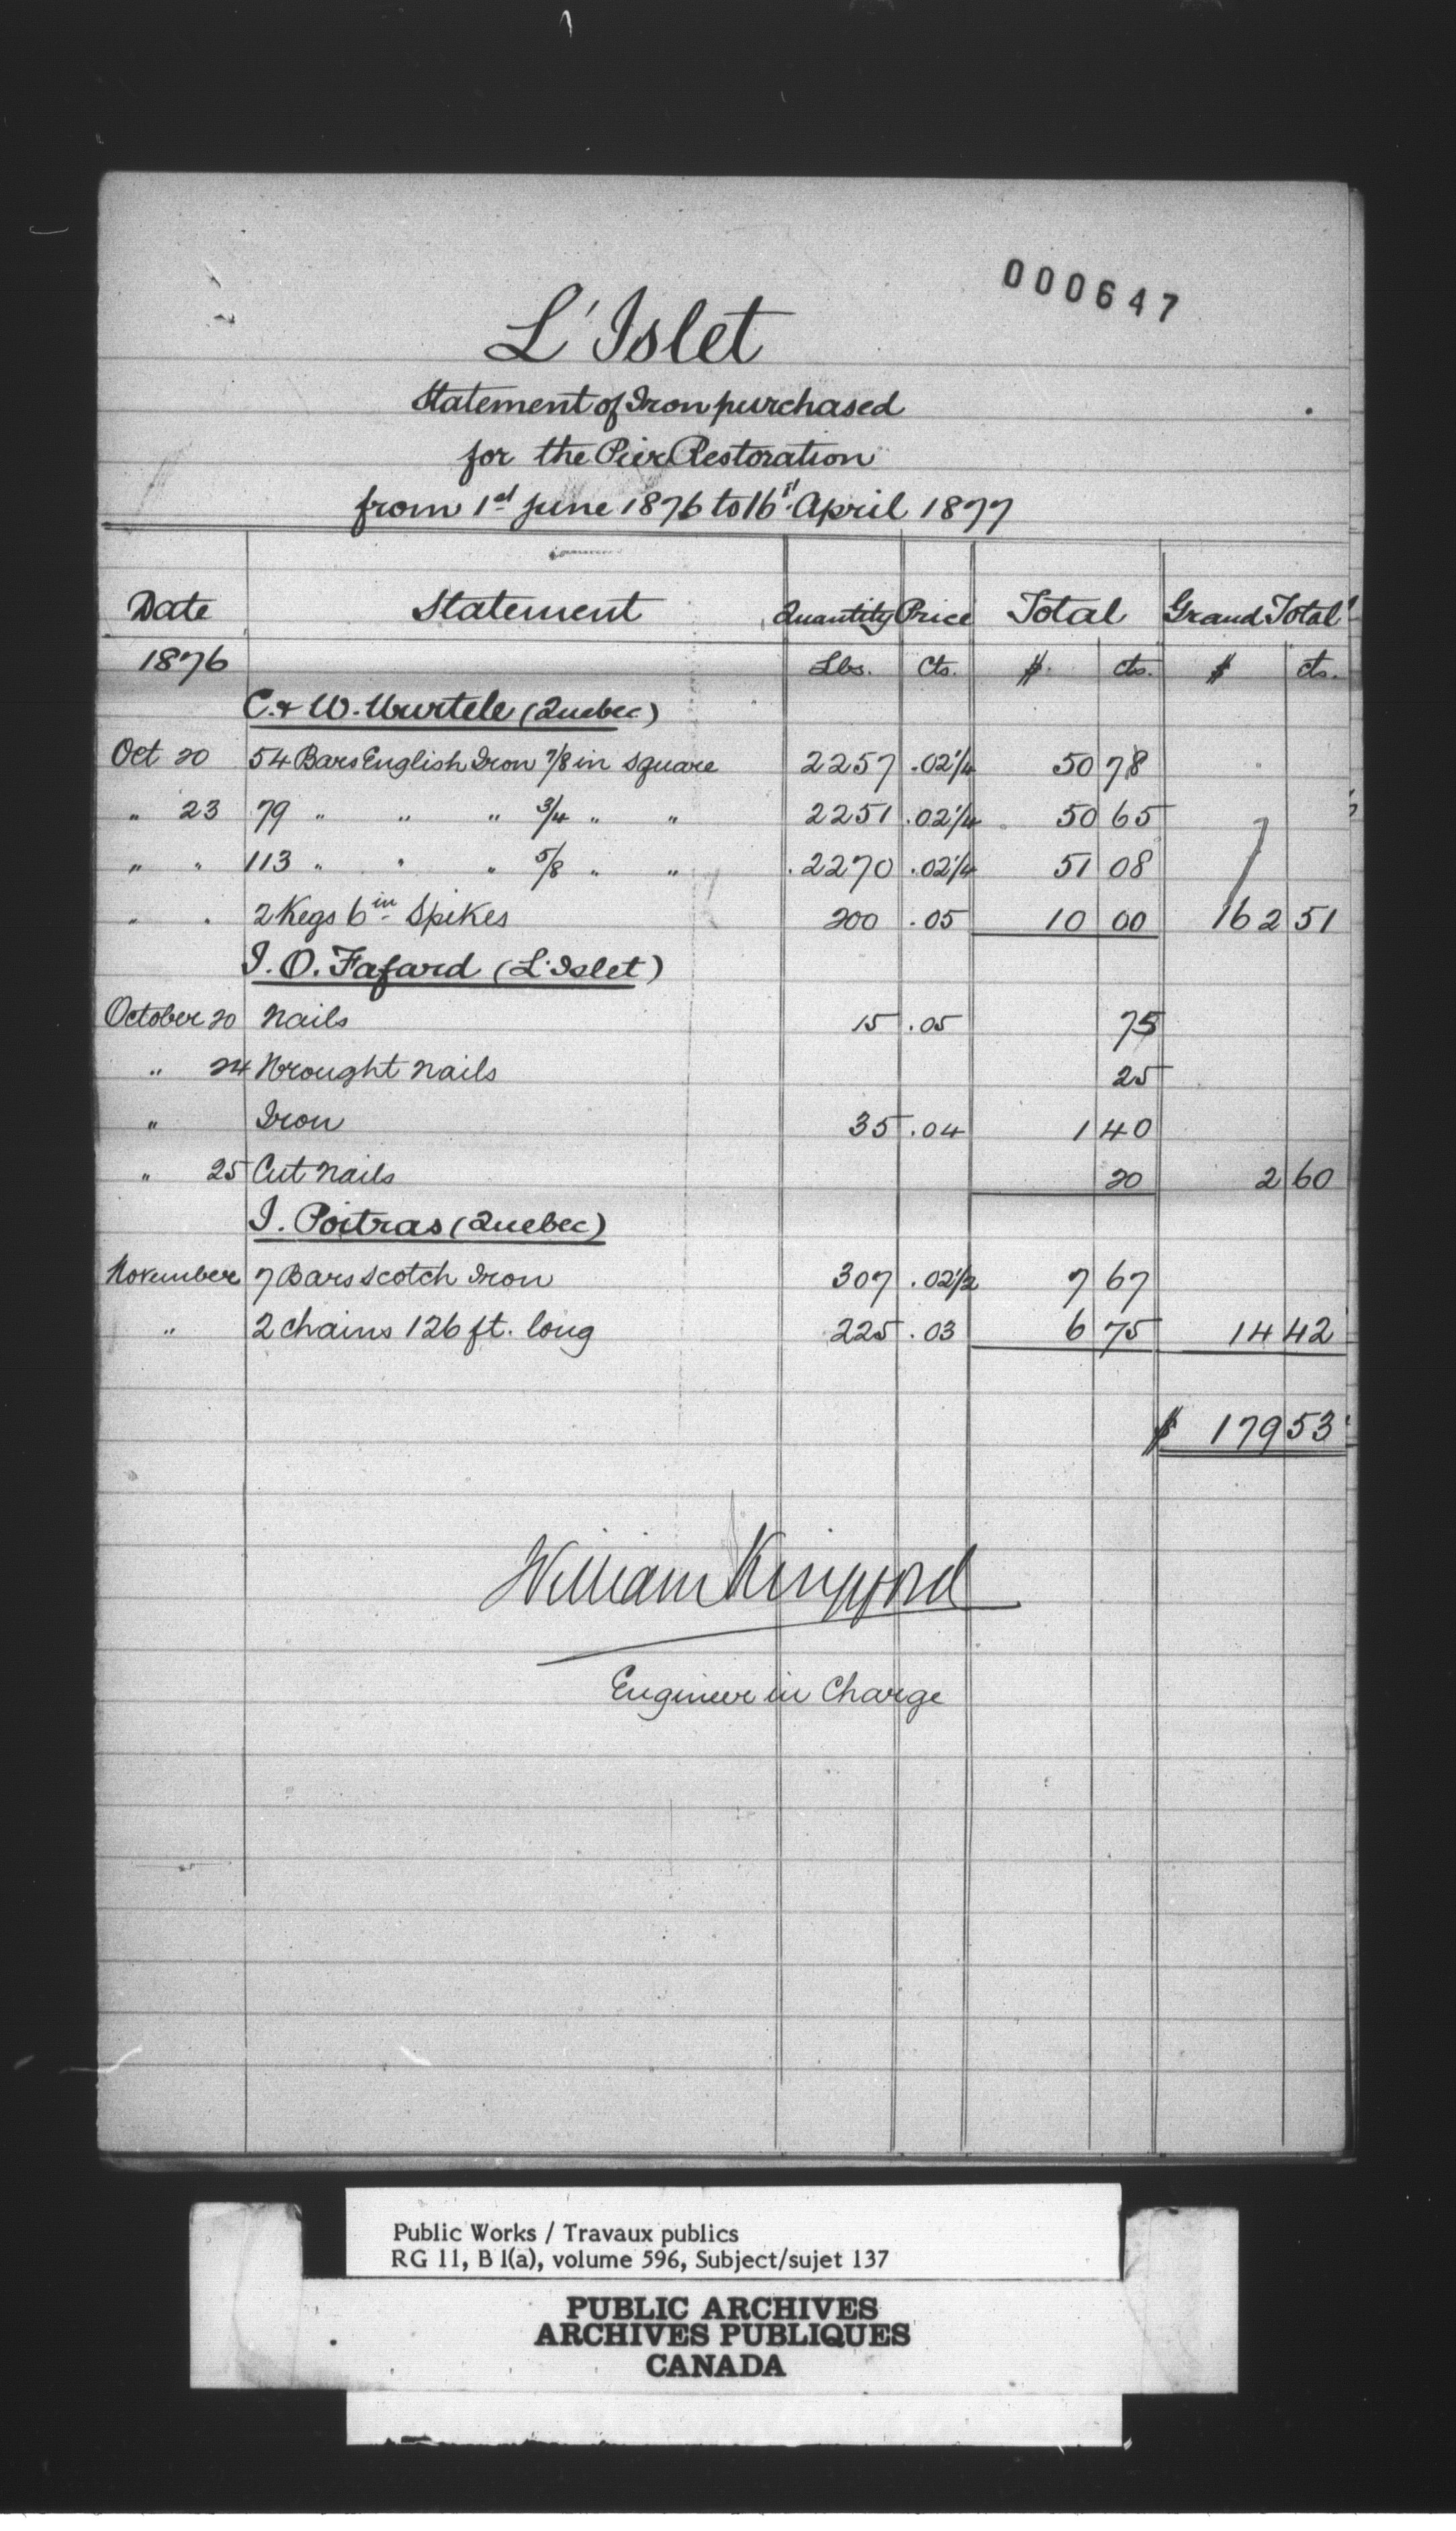 000647
L'Islet
Statement of Iron purchased
for the Pier Restoration
from 1st June 1876 to 16th April 1877
Date Statement Quantity Price Total Grand Total
1876 Lbs. Cts. $ cts. $ cts.
C. & W. Wurtele (Quebec)
Oct 20 54 Bars English Iron 7/8 in square 2257 .02 1/4 50 78
" 23 79 " " " 3/4 " " 2251 .02 1/4 50 65
" " 113 " " " 5/8 " " 2270 .02 1/4 51 08
" " 2 Kegs 6in Spikes 200 .05 10 00 162 51
J. O. Fafard (L'Islet)
October 20 Nails 15 .05 75
" 24 Wrought Nails 25
" Iron 35 .04 1 40
" 25 Cut Nails 20 2 60
J. Poitras (Quebec)
November 7 Bars Scotch Iron 307 .02 1/2 7 67
" 2 chains 126 ft. long 225 .03 6 75 14 42
$ 179 53
William Kingsford
Engineer in Charge
Public Works / Travaux publics
RG 11, B 1(a), volume 596, Subject/sujet 137
PUBLIC ARCHIVES
ARCHIVES PUBLIQUES
CANADA